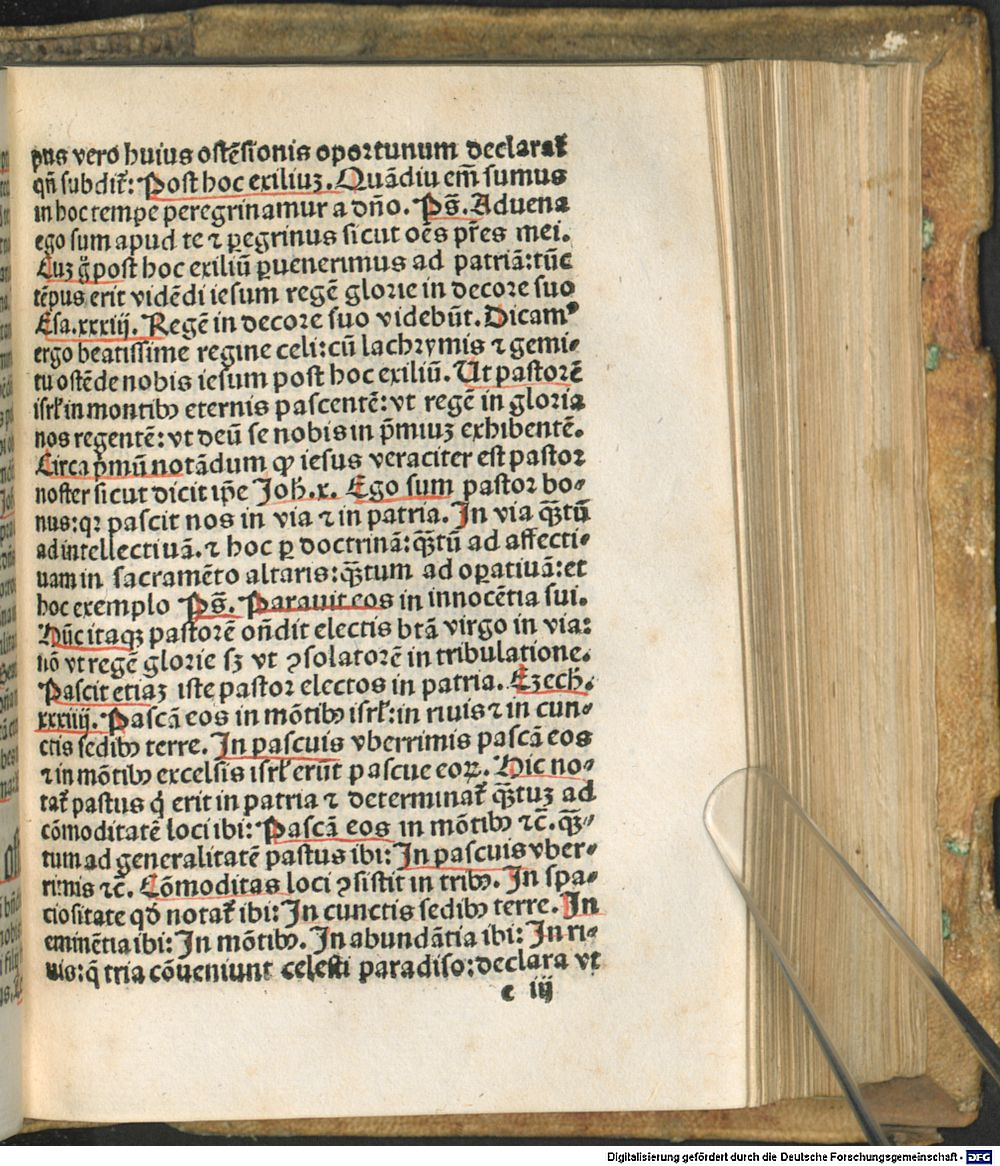 pus vero huius ostēsionis oportunum declarat᷑
qn̄ subdit᷑: Post hoc exiliuꝫ. Quādiu em̄ sumus
in hoc tempe peregrinamur a dn̄o. Ps̄. Aduena
ego sum apud te ⁊ ꝑegrinus sicut oēs pr̄es mei.
Cuꝫ g̊ post hoc exiliū ꝑuenerimus ad patriā: tūc
tēpus erit vidēdi iesum regē glorie in decore suo
Esa. xxxiij. Regē in decore suo videbūt. Dicamꝰ
ergo beatissime regine celi: cū lachrymis ⁊ gemi-
tu ostēde nobis iesum post hoc exiliū. Ut pastorē
isrl̄ in montibꝰ eternis pascentē: vt regē in gloria
nos regentē: vt deū se nobis in p̄miuꝫ exhibentē.
Circa p̄mū notādum ꝙ iesus veraciter est pastor
noster sicut dicit ip̄e Joh̄. x. Ego sum pastor bo-
nus: qꝛ pascit nos in via ⁊ in patria. In via qꝫ̄tū
ad intellectiuā. ⁊ hoc ꝑ doctrinā: qꝫ̄tū ad affecti-
uam in sacramēto altaris: qꝫ̄tum ad oꝑatiuā: et
hoc exemplo Ps̄. Parauit eos in innocētia sui.
Hūc itaqꝫ pastorē on̄dit electis btā virgo in via:
nō vt regē glorie sꝫ vt ꝯsolatorē in tribulatione.
Pascit etiaꝫ iste pastor electos in patria. Ezech̄.
xxxiiij. Pascā eos in mōtibꝰ isrl̄: in riuis ⁊ in cun-
ctis sedibꝰ terre. In pascuis vberrimis pascā eos
⁊ in mōtibꝰ excelsis isrl̄ erūt pascue eoꝝ. Hic no-
tat᷑ pastus q́ erit in patria ⁊ determinat᷑ qꝫ̄tuꝫ ad
cōmoditatē loci ibi: Pascā eos in mōtibꝰ ⁊c̄. qꝫ̄-
tum ad generalitatē pastus ibi: In pascuis vber-
rimis ⁊c̄. Cōmoditas loci ꝯsistit in tribꝰ. In spa-
ciositate qđ notat᷑ ibi: In cunctis sedibꝰ terre. In
eminētia ibi: In mōtibꝰ. In abundātia ibi: In ri-
uis: q̄ tria cōueniunt celesti paradiso: declara vt
c iij
Digitalisierung gefördert durch die Deutsche Forschungsgemeinschaft - DFG